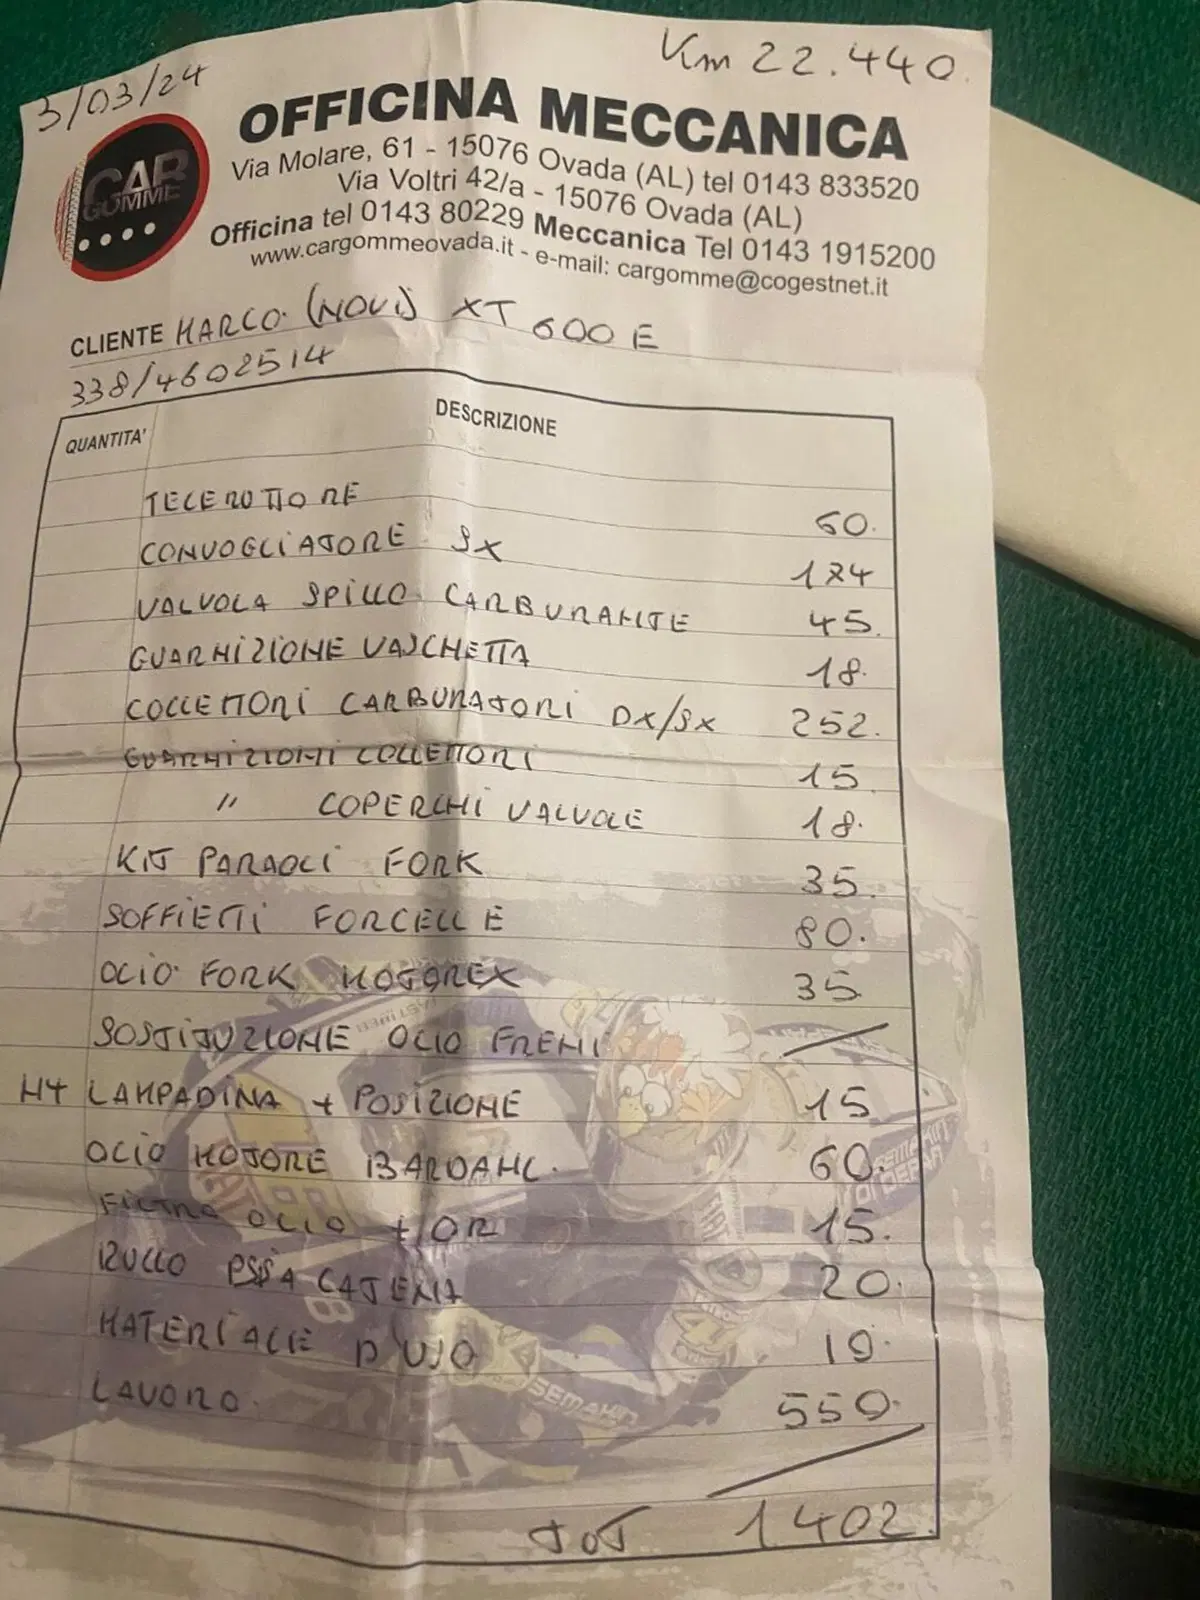 3/03/24
Km 22.440.
CAR
GOMME
OFFICINA MECCANICA
Via Molare, 61 - 15076 Ovada (AL) tel 0143 833520
Via Voltri 42/a - 15076 Ovada (AL)
Officina tel 0143 80229 Meccanica Tel 0143 1915200
www.cargommeovada.it - e-mail: cargomme@cogestnet.it
CLIENTE MARCO. (NOVI) XT 600 E
338/4602514
QUANTITA' DESCRIZIONE
TELERUTTORE 60.
CONVOGLIATORE SX 124
VALVOLA SPILLO CARBURANTE 45.
GUARNIZIONE VASCHETTA 18.
COLLETTORI CARBURATORI DX/SX 252.
GUARNIZIONI COLLETTORI 15.
" COPERCHI VALVOLE 18.
KIT PARAOLI FORK 35.
SOFFIETTI FORCELLE 80.
OLIO FORK MOTOREX 35
SOSTITUZIONE OLIO FRENI /
H4 LAMPADINA + POSIZIONE 15
OLIO MOTORE BARDAHL. 60.
FILTRO OLIO + OR 15.
RULLO PSSA CATENA 20.
MATERIALE D'USO 10.
LAVORO. 550.
TOT 1402.
SEMAKIN